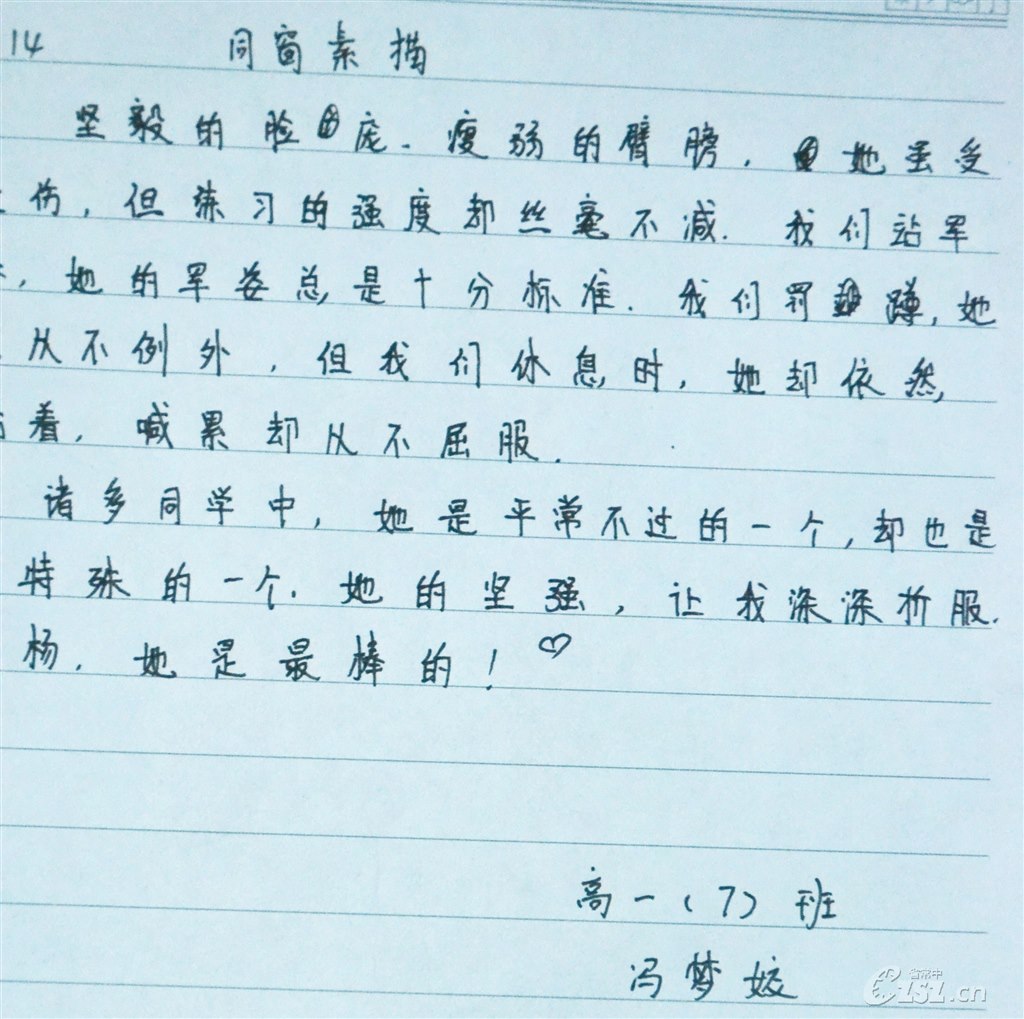 14 同窗素描
坚毅的脸庞.瘦弱的臂膀,她虽受
伤,但练习的强度却丝毫不减.我们站军
,她的军姿总是十分标准.我们罚蹲,她
从不例外,但我们休息时,她却依然
着,喊累却从不屈服.
诸多同学中,她是平常不过的一个,却也是
特殊的一个.她的坚强,让我深深折服.
杨.她是最棒的!♡
高一(7)班
冯梦姣
省常中
CZ1Z1.cn